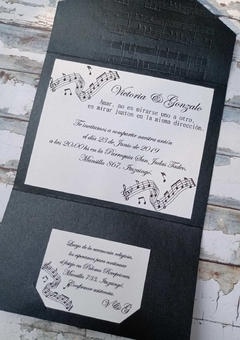 Victoria & Gonzalo
Amar, no es mirarse uno a otro,
es mirar juntos en la misma dirección.
Te invitamos a compartir nuestra unión
el día 25 de Junio de 2019
a las 20:00 hs en la Parroquia San Judas Tadeo,
Mansilla 867, Ituzaingó.
Luego de la ceremonia religiosa,
los esperamos para continuar
el festejo en Paloma Recepciones,
Mansilla 733, Ituzaingó.
Confirmar asistencia.
V & G